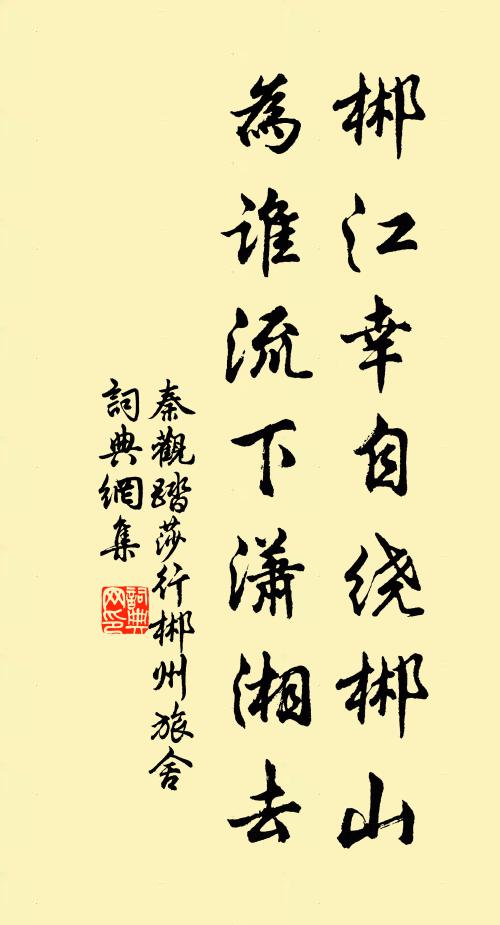 郴江幸自绕郴山
為谁流下潇湘去
秦觀踏莎行郴州旅舍
詞典網集
詞典
网印